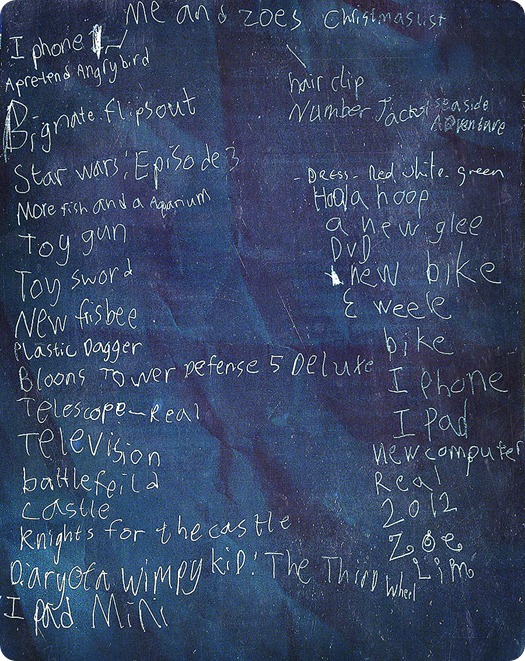 me and zoes Christmas list
I phone
A pretend Angry bird
Dignate. flipsout
Star wars: Episode 3
More fish and a Aquarium
Toy gun
Toy sword
New frisbee
Plastic Dagger
Bloons Tower Defense 5 Deluxe
Telescope-Real
Television
battlefeild
castle
knights for the castle
Diary of a Wimpy kid: The Third Wheel
I pad Mini
hair clip
Number Jacks seaside
Adventure
- Dress - Red white green
Hoola hoop
a new glee
DVD
new bike
weele
bike
I phone
I Pad
new computer
Real
2012
Zoe
Lim